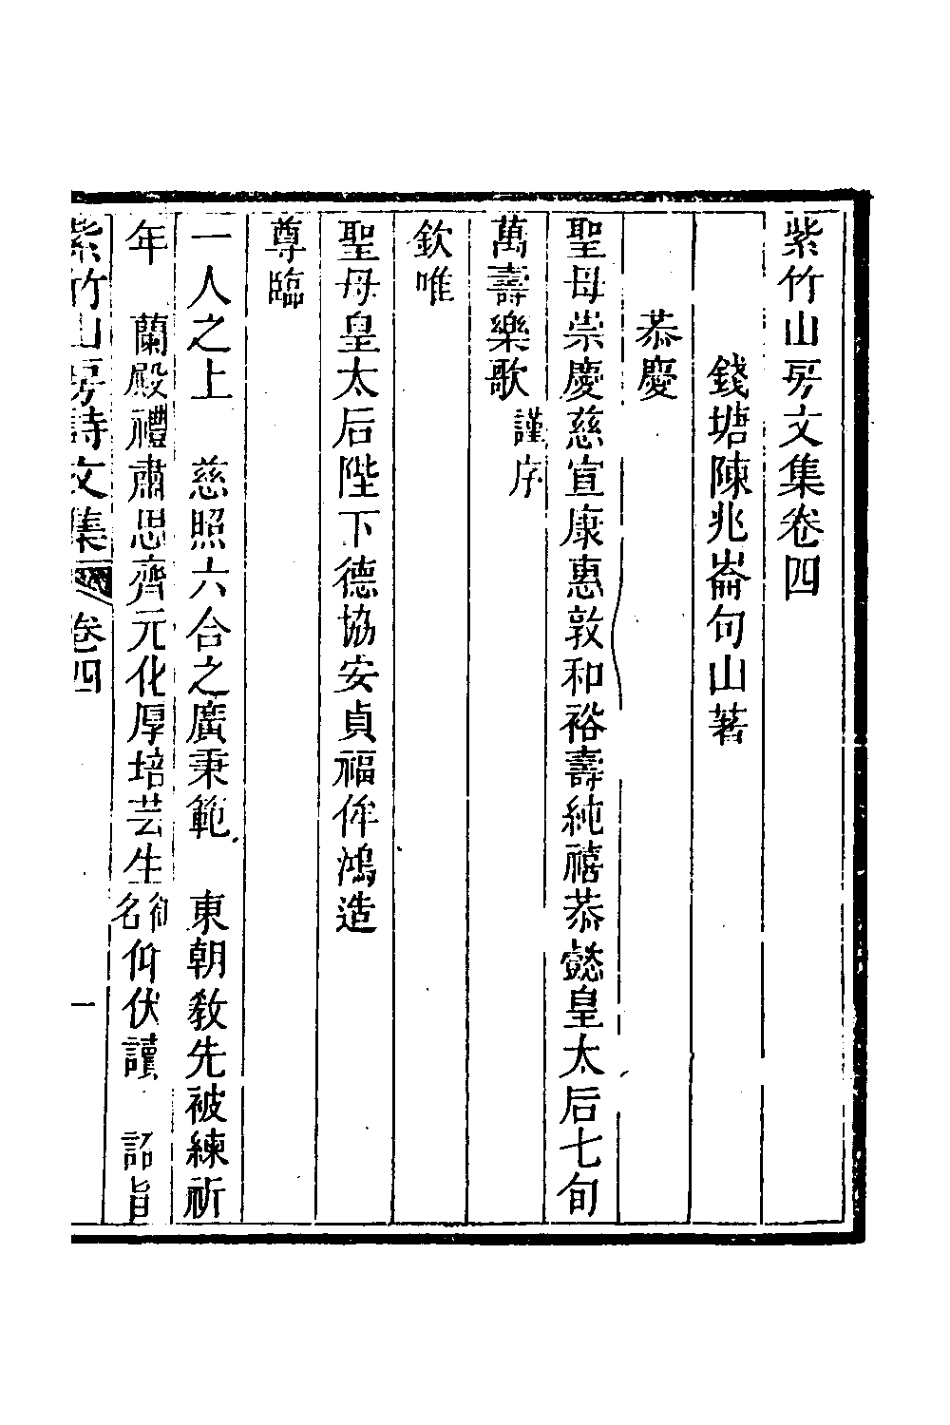 紫竹山房文集卷四
錢塘陳兆崙句山著
恭慶
聖母崇慶慈宣康惠敦和裕壽純禧恭懿皇太后七旬
萬壽樂歌謹序
欽唯
聖母皇太后陛下德協安貞福侔鴻造
尊臨
一人之上　慈照六合之廣秉範　東朝敎先被練祈
年　蘭殿禮肅思齊元化厚培芸生御名仰伏讀　詔旨
紫竹山房詩文集　卷四　一